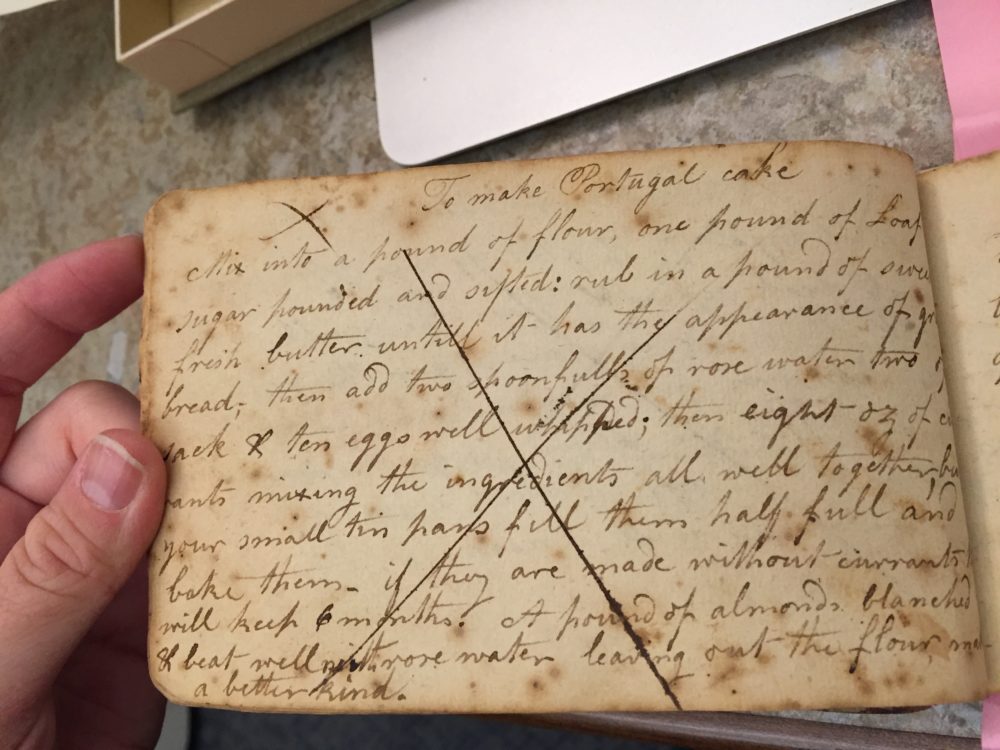 To make Portugal cake
Mix into a pound of flour, one pound of Loaf
sugar pounded and sifted: rub in a pound of
fresh butter untill it has the appearance of
bread; then add two spoonfulls of rose water two
sack & ten eggs well whipped; then eight oz of
rants mixing the ingredients all well together,
your small tin pans fill them half full and
bake them - if they are made without currants
will keep 6 months. A pound of almonds blanched
& beat well with rose water leaving out the flour,
a better kind.